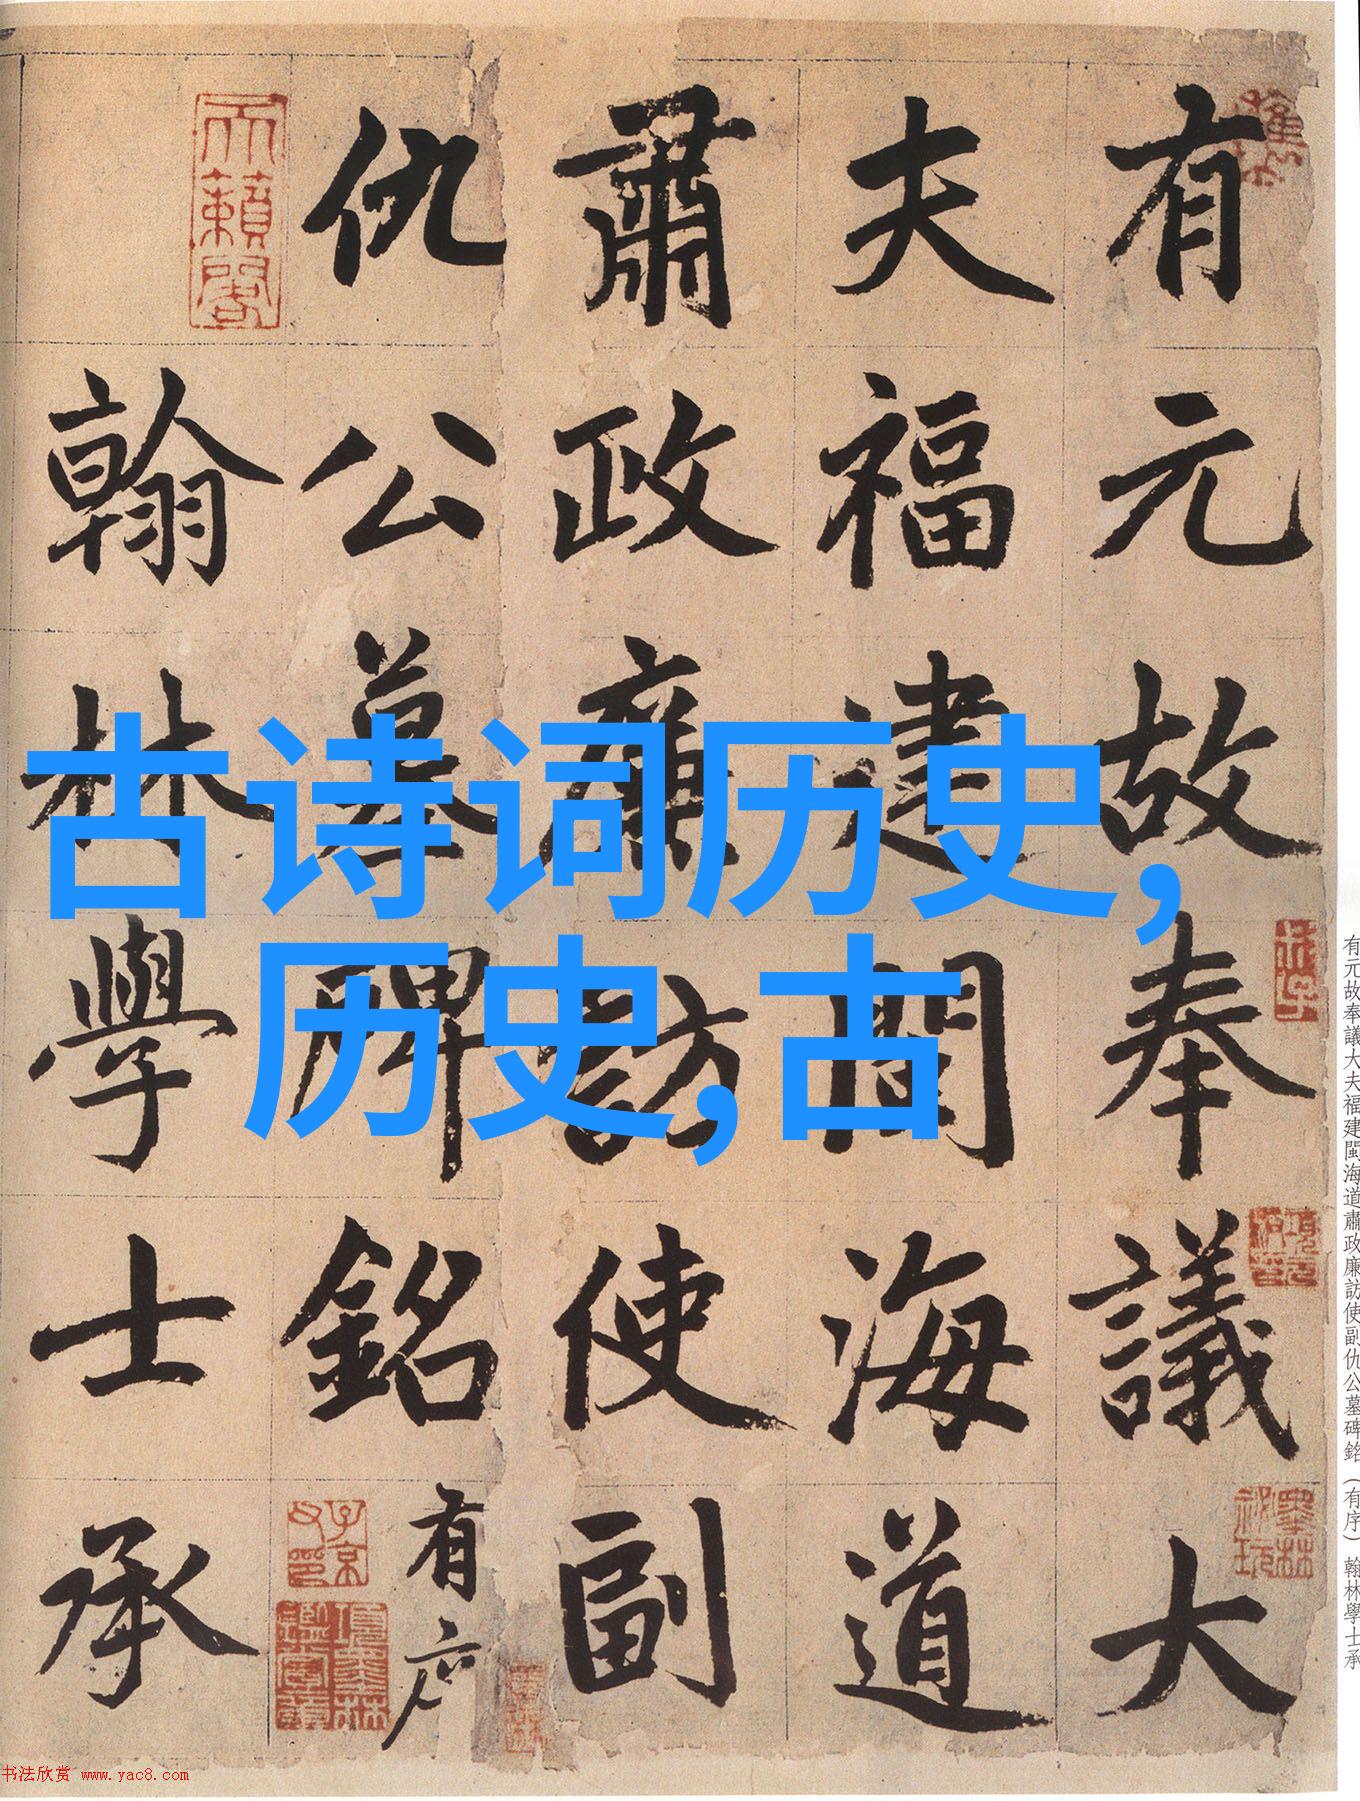 有元故奉議大
夫福建閩海道
肅政廉訪使副
仇公墓碑銘有序
翰林學士承
天籟閣
古诗词历史,
历史,古
有元故奉議大夫福建閩海道肅政廉訪使副仇公墓碑銘（有序） 翰林學士承
书法欣赏 www.yac8.com